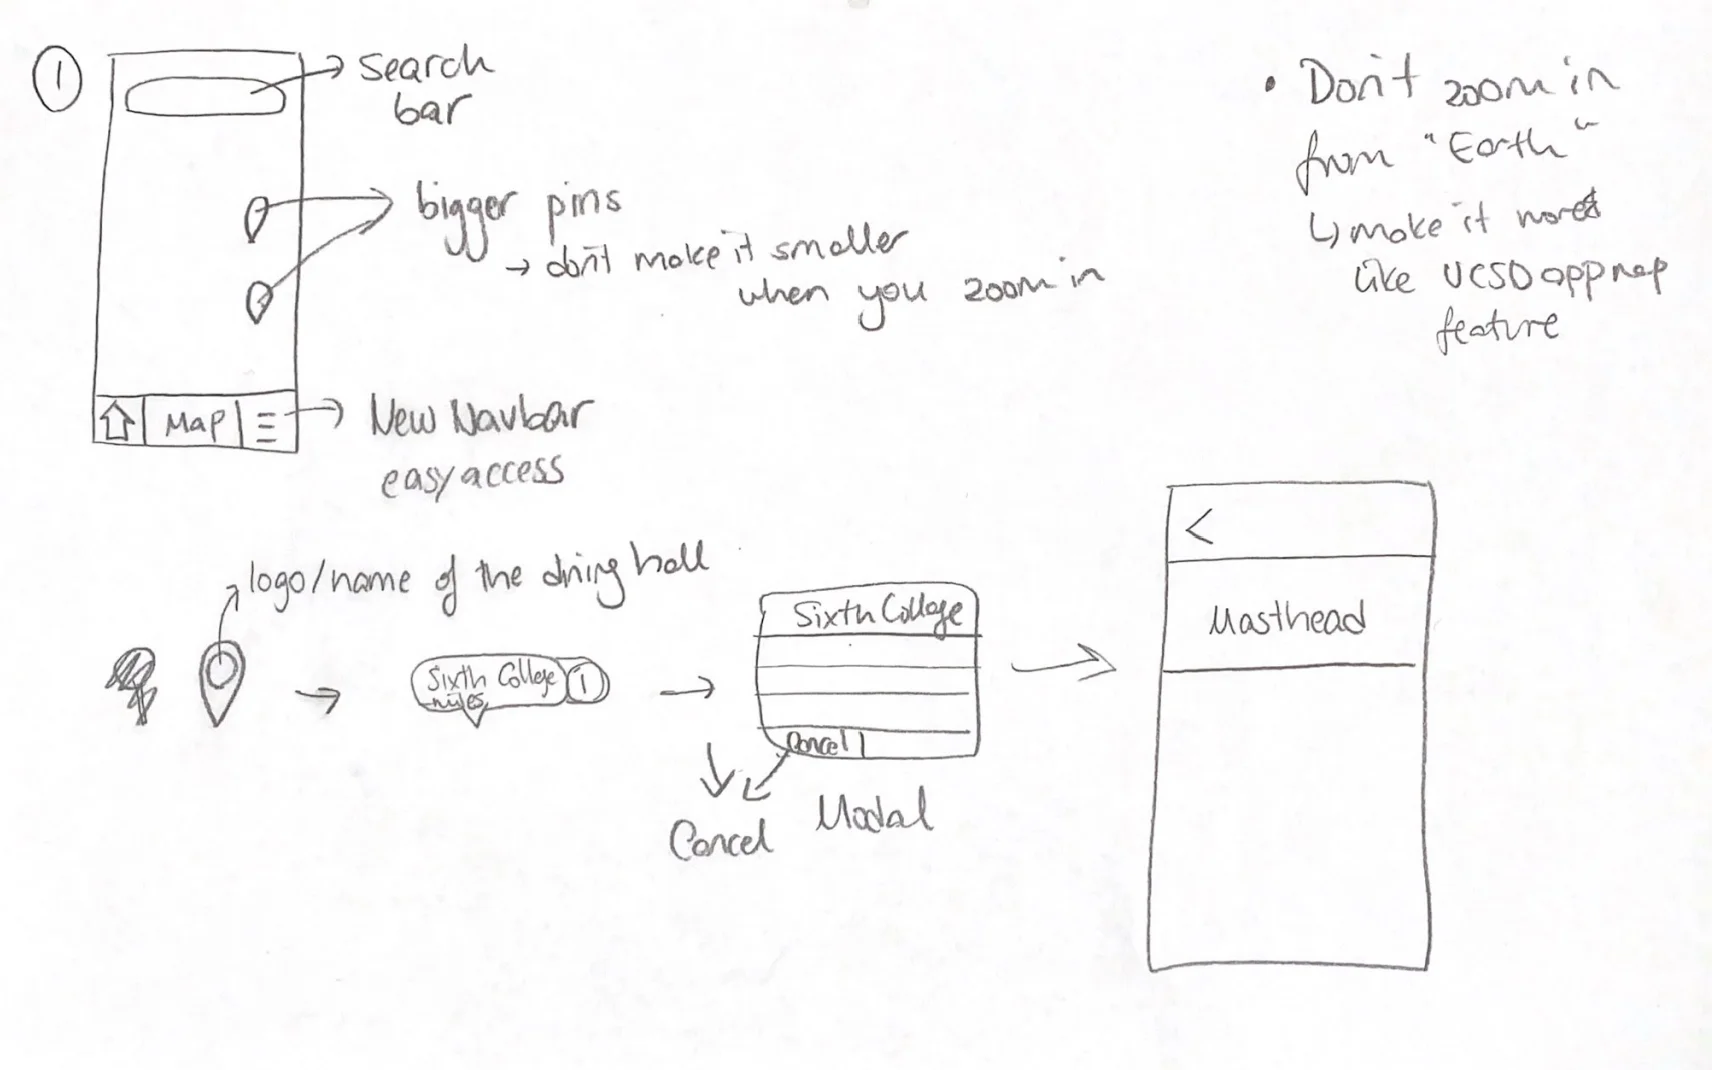 1
search
bar
bigger pins
→ don't make it smaller
when you zoom in
Map
New Navbar
easy access
• Don't zoom in
from "Earth"
↳ make it more
like UCSD app map
feature
logo/name of the dining hall
Sixth College
i
→
Sixth College
Cancel
Cancel
Modal
<
Masthead